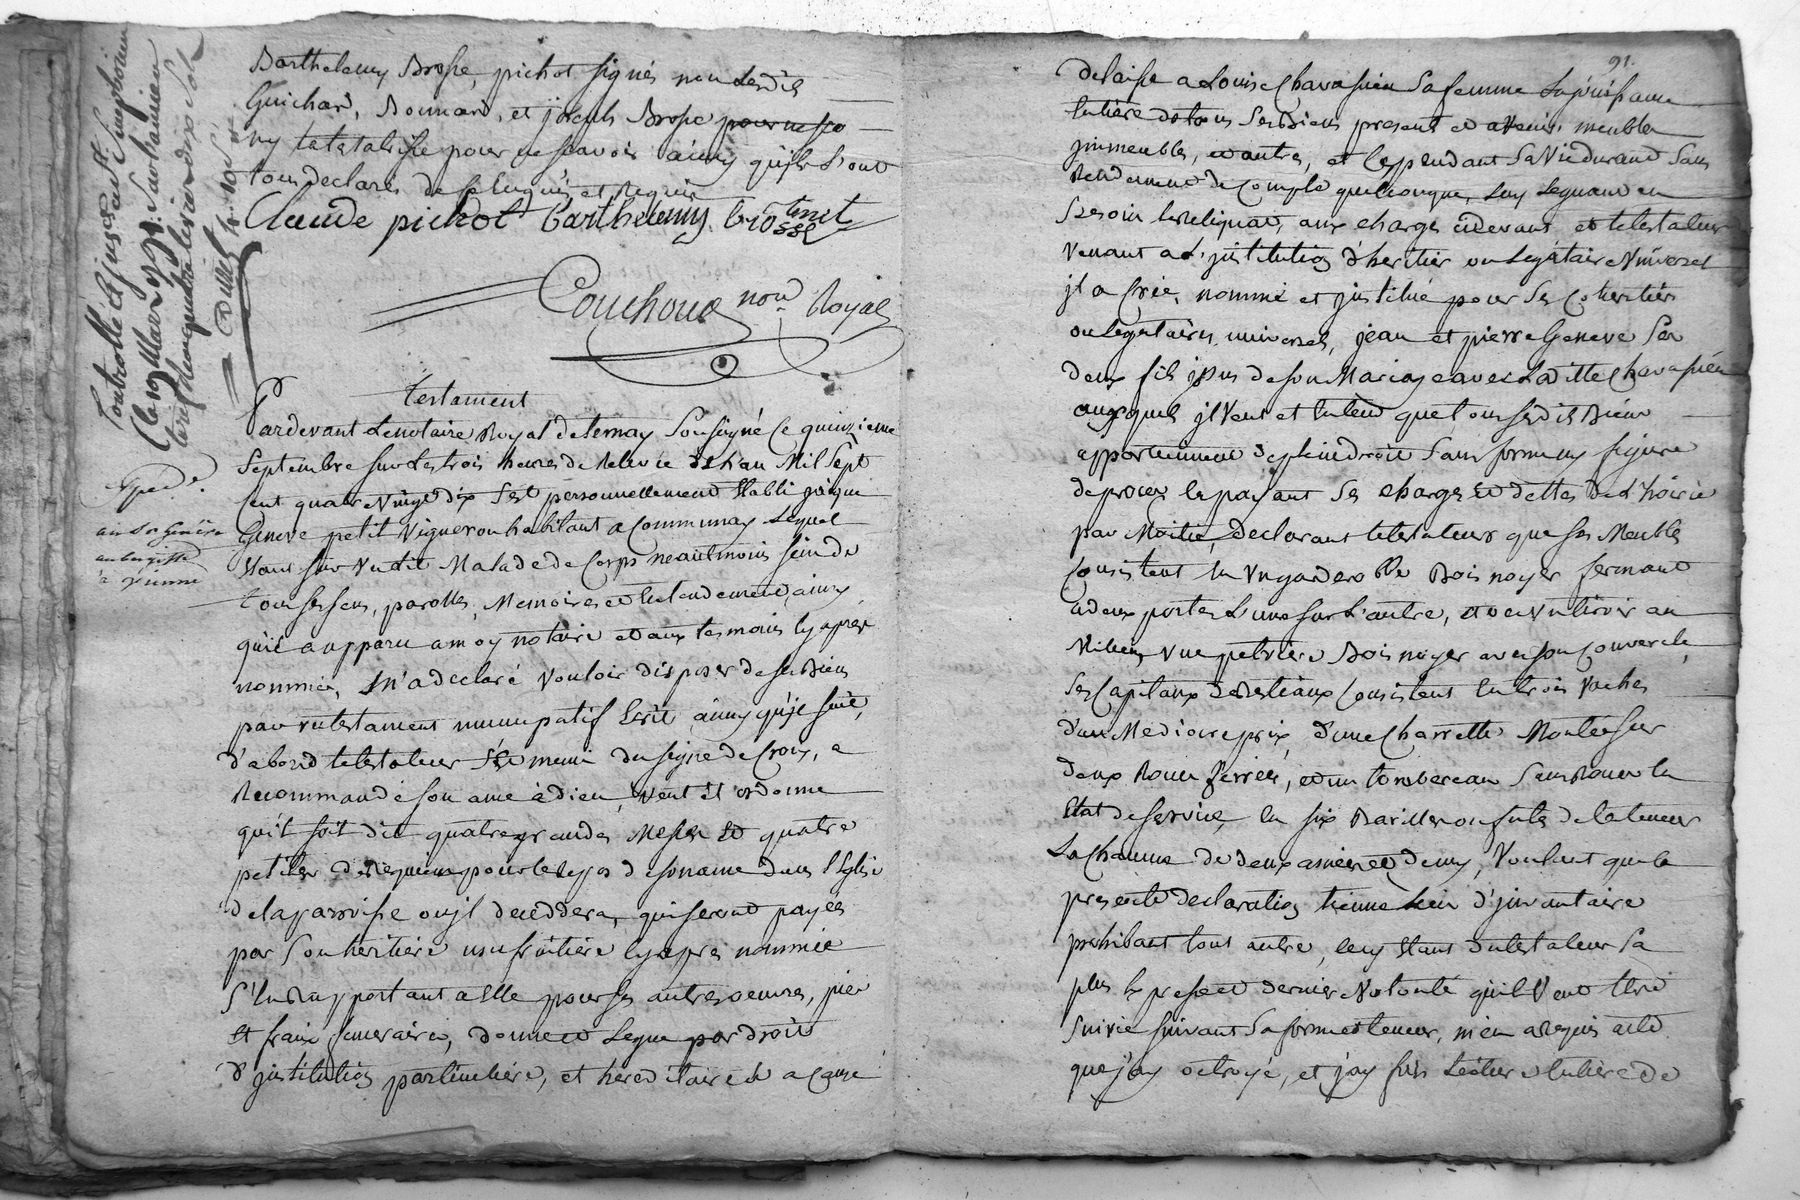 Barthelemy Brosse, pichot signés non lesdits
Guichard, Bonnard, et joseph Brosse pour ne sca
ny le testateur pour ne scavoir ainsy qu'ils l'ont
tous declarés de ce enquis et requis
Claude pichot Barthelemy brosse
Couchoud nore Royal
Controllé à St. Simphorien
le 29 Mars 1791.
quatre livres dix sols
testament
Pardevant le notaire Royal de ternay soussigné le quinzieme
Septembre sur les trois heures de relevée de l'an Mil Sept
cent quatre vingt dix s'est personnellement Etabli
Geneve petit vigneron habitant a Communay lequel
Etant sur un lit Malade de Corps neantmoins sein de
tous ses sens, parolle, Memoires et entendement, ainsy
qu'il a apparu a moy notaire et aux temoins cy apres
nommés, M'a declaré vouloir disposer de ses Biens
par un testament nuncupatif Ecrit ainsy qu'il suit,
d'abord le testateur s'est muni du signe de Croix, a
Recommandé son ame à dieu, veut et ordonne
qu'il soit dit quatre grandes Messes et quatre
petites de requiem pour le repos de son ame dans l'Eglise
de la parroisse ou il deceddera, qui seront payées
par son heritiere usufruitiere cy apres nommée
S'en Rapportant a Elle pour ses autres oeuvres, pies
Et fraix funeraires, donne et Legue par droit
d'institution particuliere, et hereditaire et a cause
Expede.
aubergiste
à vienne
91.
delaisse a Louise Chavassieu sa femme la jouissance
Entiere de tous ses Biens presents et avenir, meubles
immeubles, et autres, et ce pendant sa Vie durant sans
Rendement de Compte quelconque, luy leguant en
Besoin le reliquat, aux charges cidevant et le testateur
Venant a L'institution d'heritier ou Legataire Universel
il a Créé, nommé et institué pour ses Coheritiers
ou Legataires universels, jean et pierre Geneve ses
deux fils issus de son Mariage avec Laditte Chavassieu
auxquels il Veut et Entend que tous sesdits Biens
appartiennent de plein droit sans forme ny figure
de procez en payant ses charges et dettes de L'hoirie
par Moitié, declarant le testateur que ses Meubles
Consistent En un garderobbe Bois noyer fermant
a deux portes L'une sur L'autre, et avec un tiroir au
Milieu, une petriere Bois noyer avec son Couvercle,
ses Capitaux de Bestiaux Consistent En trois vaches
d'un Mediocre prix, d'une Charrette Montée sur
deux Roues ferrées, et un tombereau sans Roues En
Etat de service, En six Barilles ou futs de la teneur
La Chaune de deux asnées et demy, Voulant que la
presente declaration tienne Lieu d'inventaire
prohibant tout autre, ceuy Etant du testateur sa
plus Expresse et derniere Volonté qu'il Veut Etre
suivie suivant sa forme et teneur, m'en a requis acte
que j'ay octroyé, et j'ay fais Lecture Entiere de